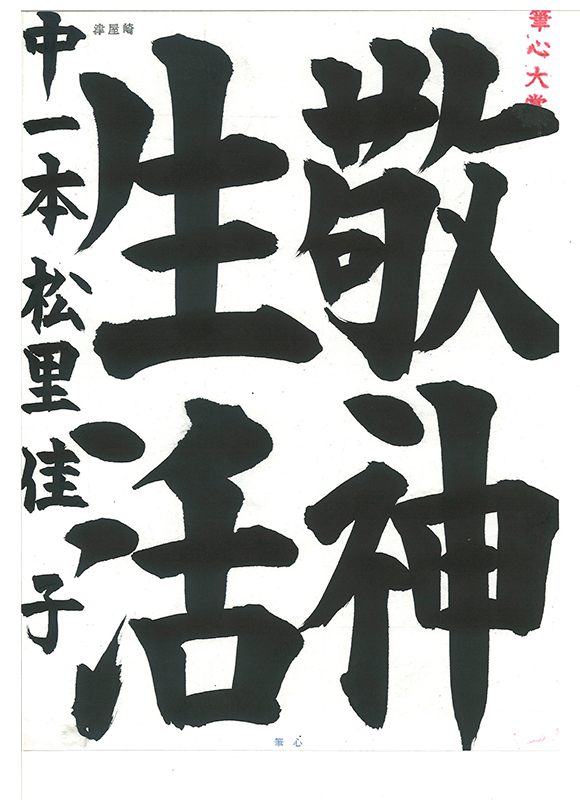 筆心大賞
敬神
生活
津屋崎
中一本松里佳子
筆心